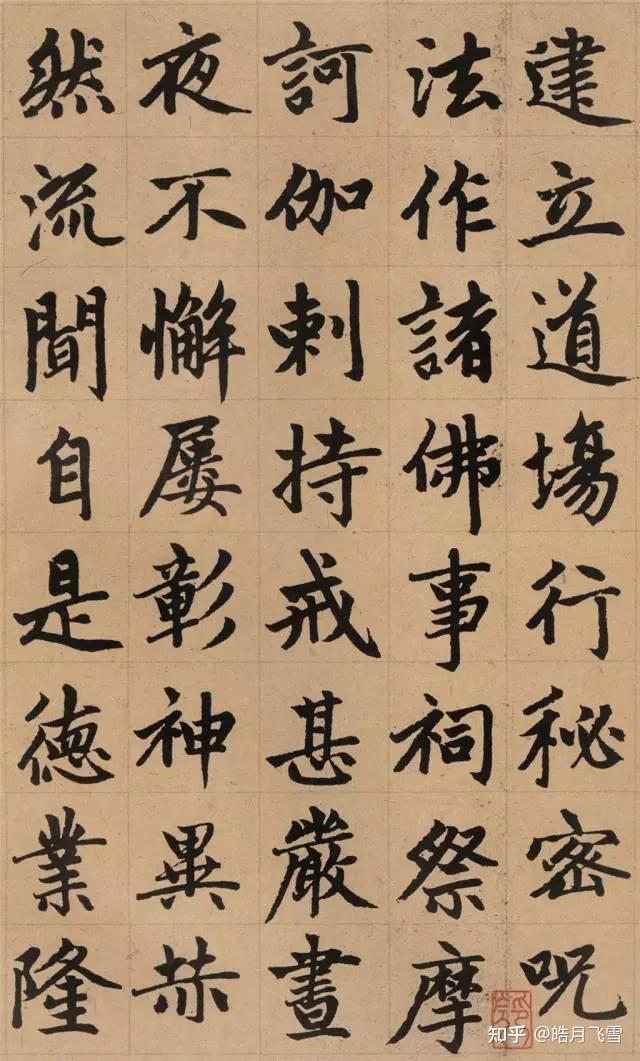 建立道場行秘密呪
法作諸佛事祠祭摩
訶伽剌持戒甚嚴晝
夜不懈屢彰神異赫
然流聞自是德業隆
知乎 @皓月飞雪